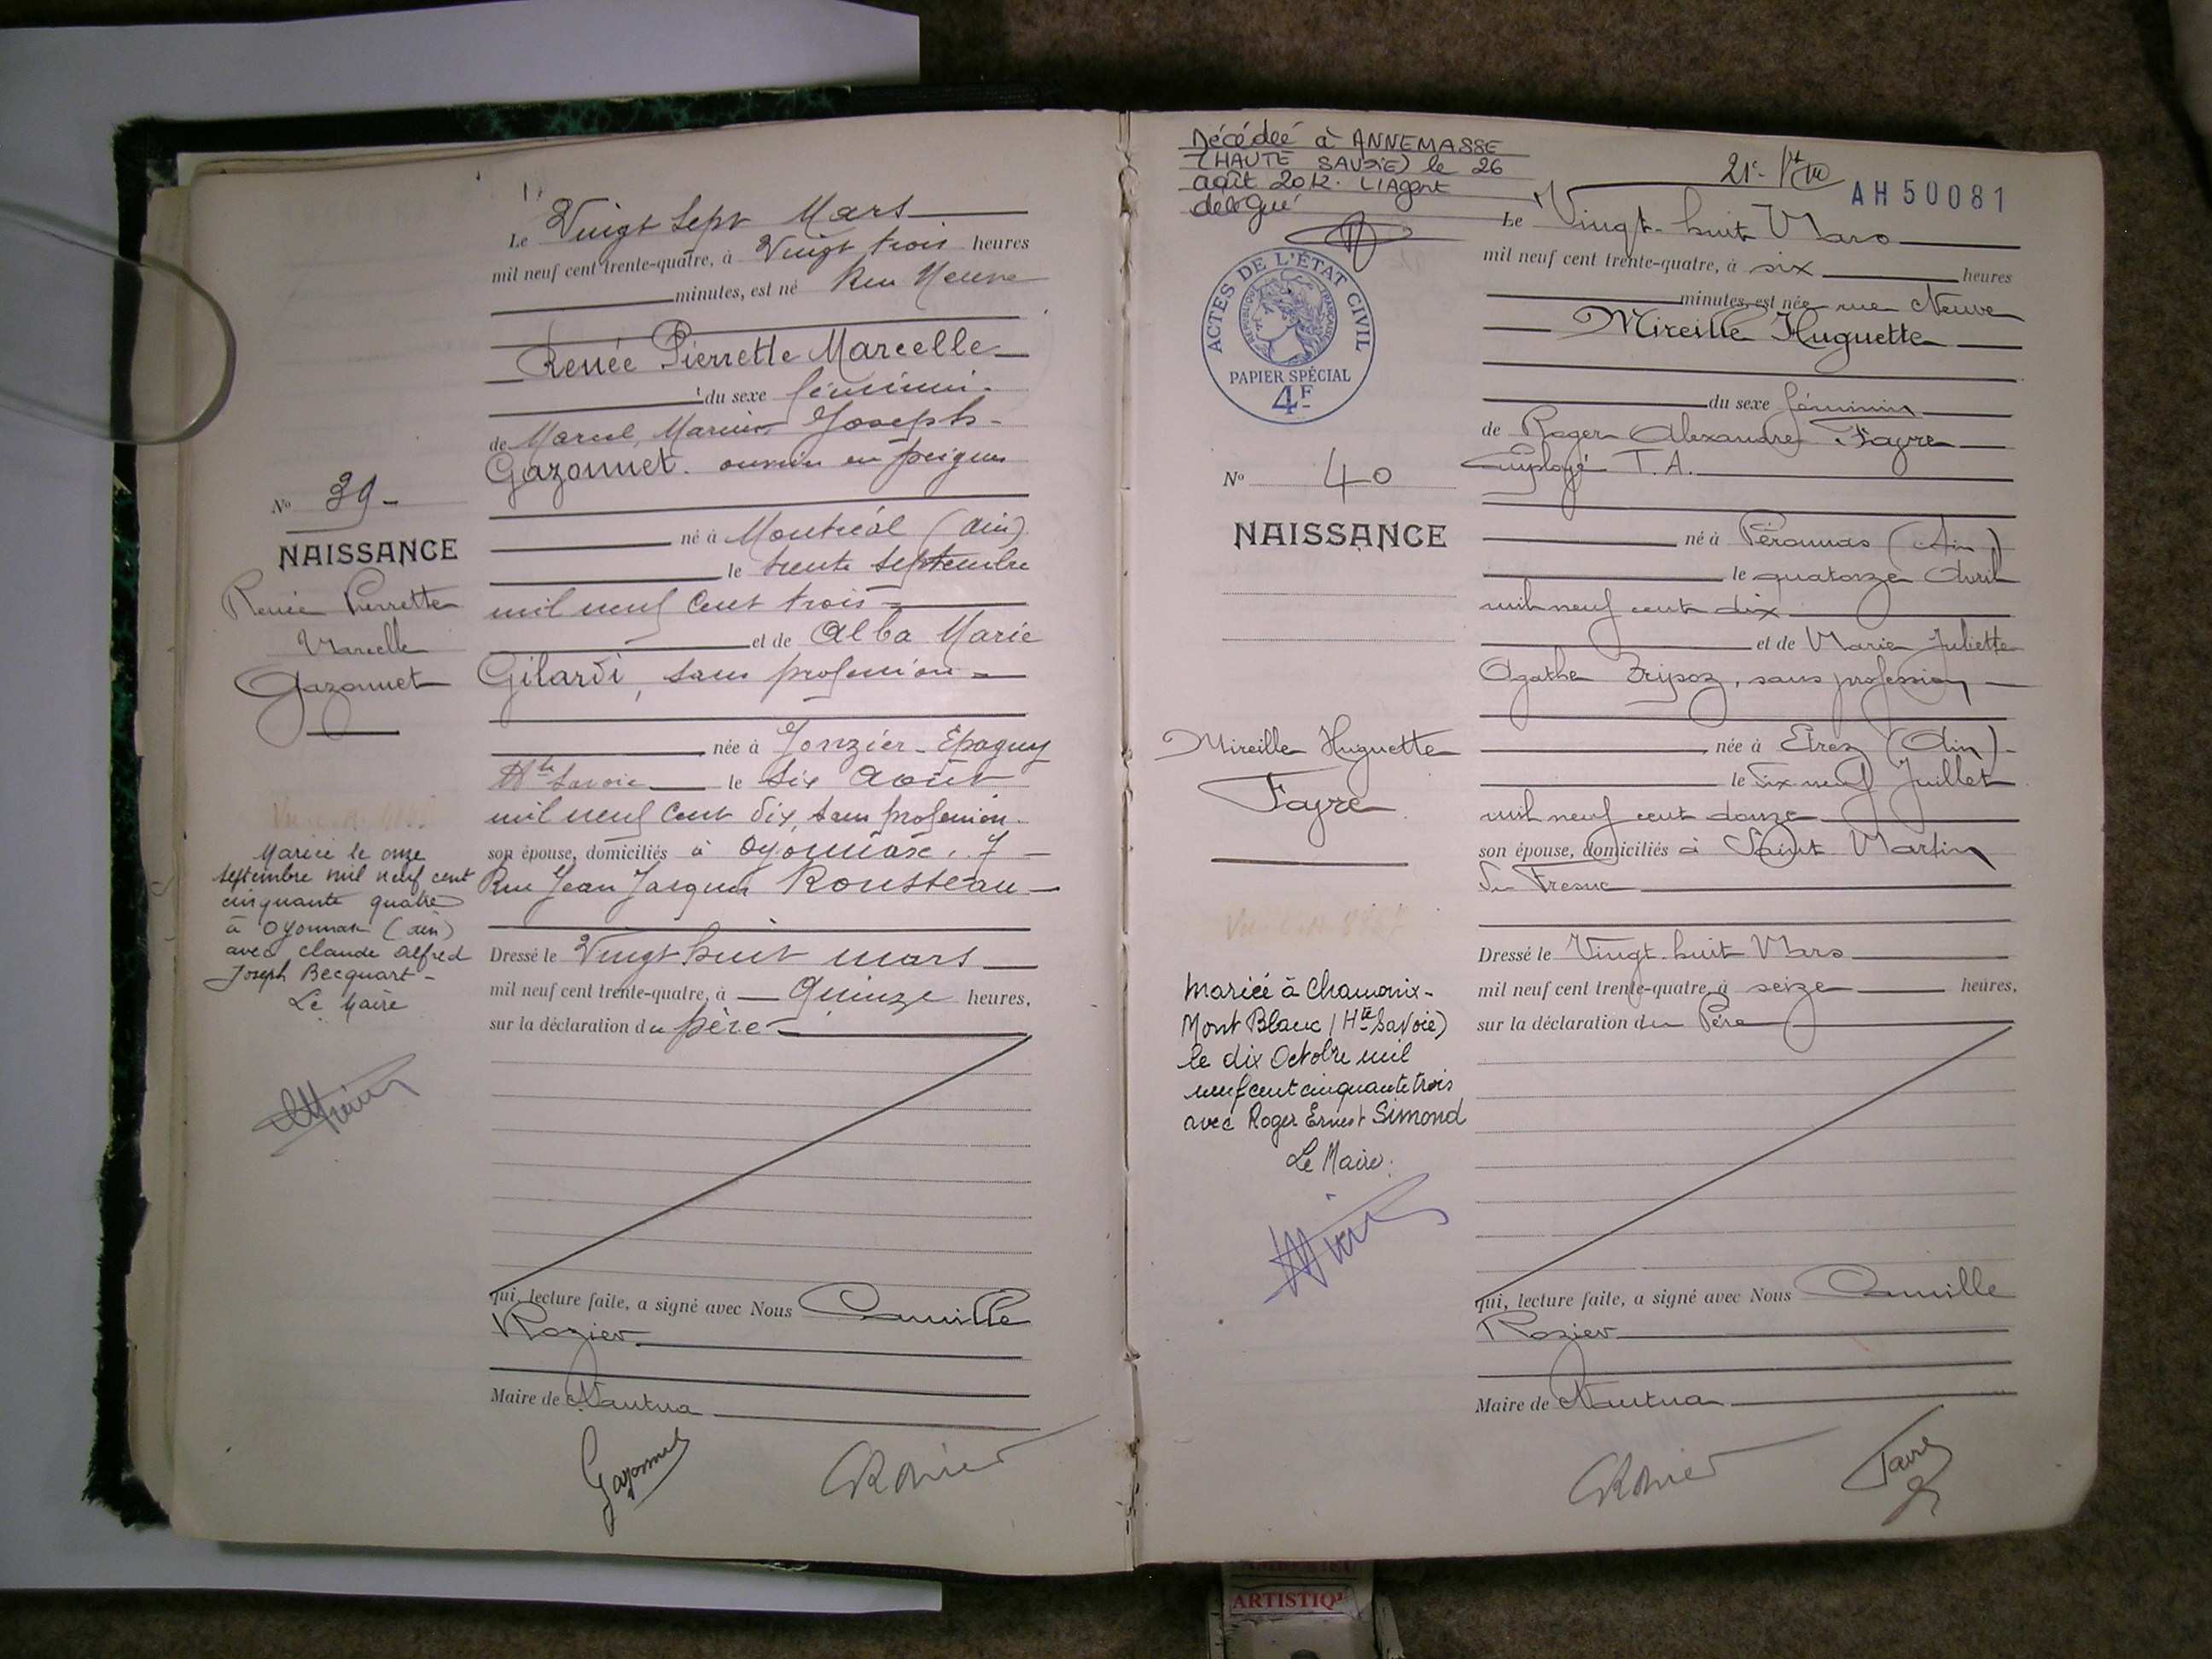 Le Vingt sept Mars
mil neuf cent trente-quatre, à Vingt trois heures
minutes, est né Rue Neuve
Renée Pierrette Marcelle
du sexe féminin.
de Marcel, Marius Joseph
Gazonnet. ouvrier en peignes
né à Montréal (Ain)
le trente septembre
mil neuf cent trois
et de Alba Marie
Gilardi, sans profession
née à Jonzier-Epagny
Hte Savoie le six août
mil neuf cent dix, sans profession.
son épouse, domiciliés à Oyonnax, 7
Rue Jean Jacques Rousseau
Dressé le Vingt huit mars
mil neuf cent trente-quatre, à Quinze heures,
sur la déclaration du père
qui, lecture faite, a signé avec Nous Camille
Rozier
Maire de Nantua
Gazonnet
CRozier
No 39
NAISSANCE
Renée Pierrette
Marcelle
Gazonnet
Mariée le onze
septembre mil neuf cent
cinquante quatre
à Oyonnax (ain)
avec Claude Alfred
Joseph Becquart
Le Maire
Décédée à ANNEMASSE
(HAUTE SAVOIE) le 26
août 2012. L'Agent
délégué
21e
AH 50081
ACTES DE L'ÉTAT CIVIL
RÉPUBLIQUE FRANÇAISE
PAPIER SPÉCIAL
4F
No 40
NAISSANCE
Mireille Huguette
Favre
Mariée à Chamonix-
Mont Blanc (Hte Savoie)
le dix Octobre mil
neuf cent cinquante trois
avec Roger Ernest Simond
Le Maire.
Le Vingt-huit Mars
mil neuf cent trente-quatre, à six heures
minutes, est née rue Neuve
Mireille Huguette
du sexe féminin
de Roger Alexandre Favre
Employé T.A.
né à Péronnas (Ain)
le quatorze Avril
mil neuf cent dix
et de Marie Juliette
Agathe Tripoz, sans profession
née à Etrez (Ain)
le dix-neuf Juillet
mil neuf cent douze
son épouse, domiciliés à Saint Martin
du Fresne
Dressé le Vingt-huit Mars
mil neuf cent trente-quatre, à seize heures,
sur la déclaration du Père
qui, lecture faite, a signé avec Nous Camille
Rozier
Maire de Nantua
CRozier
Favre
ARTISTIQ